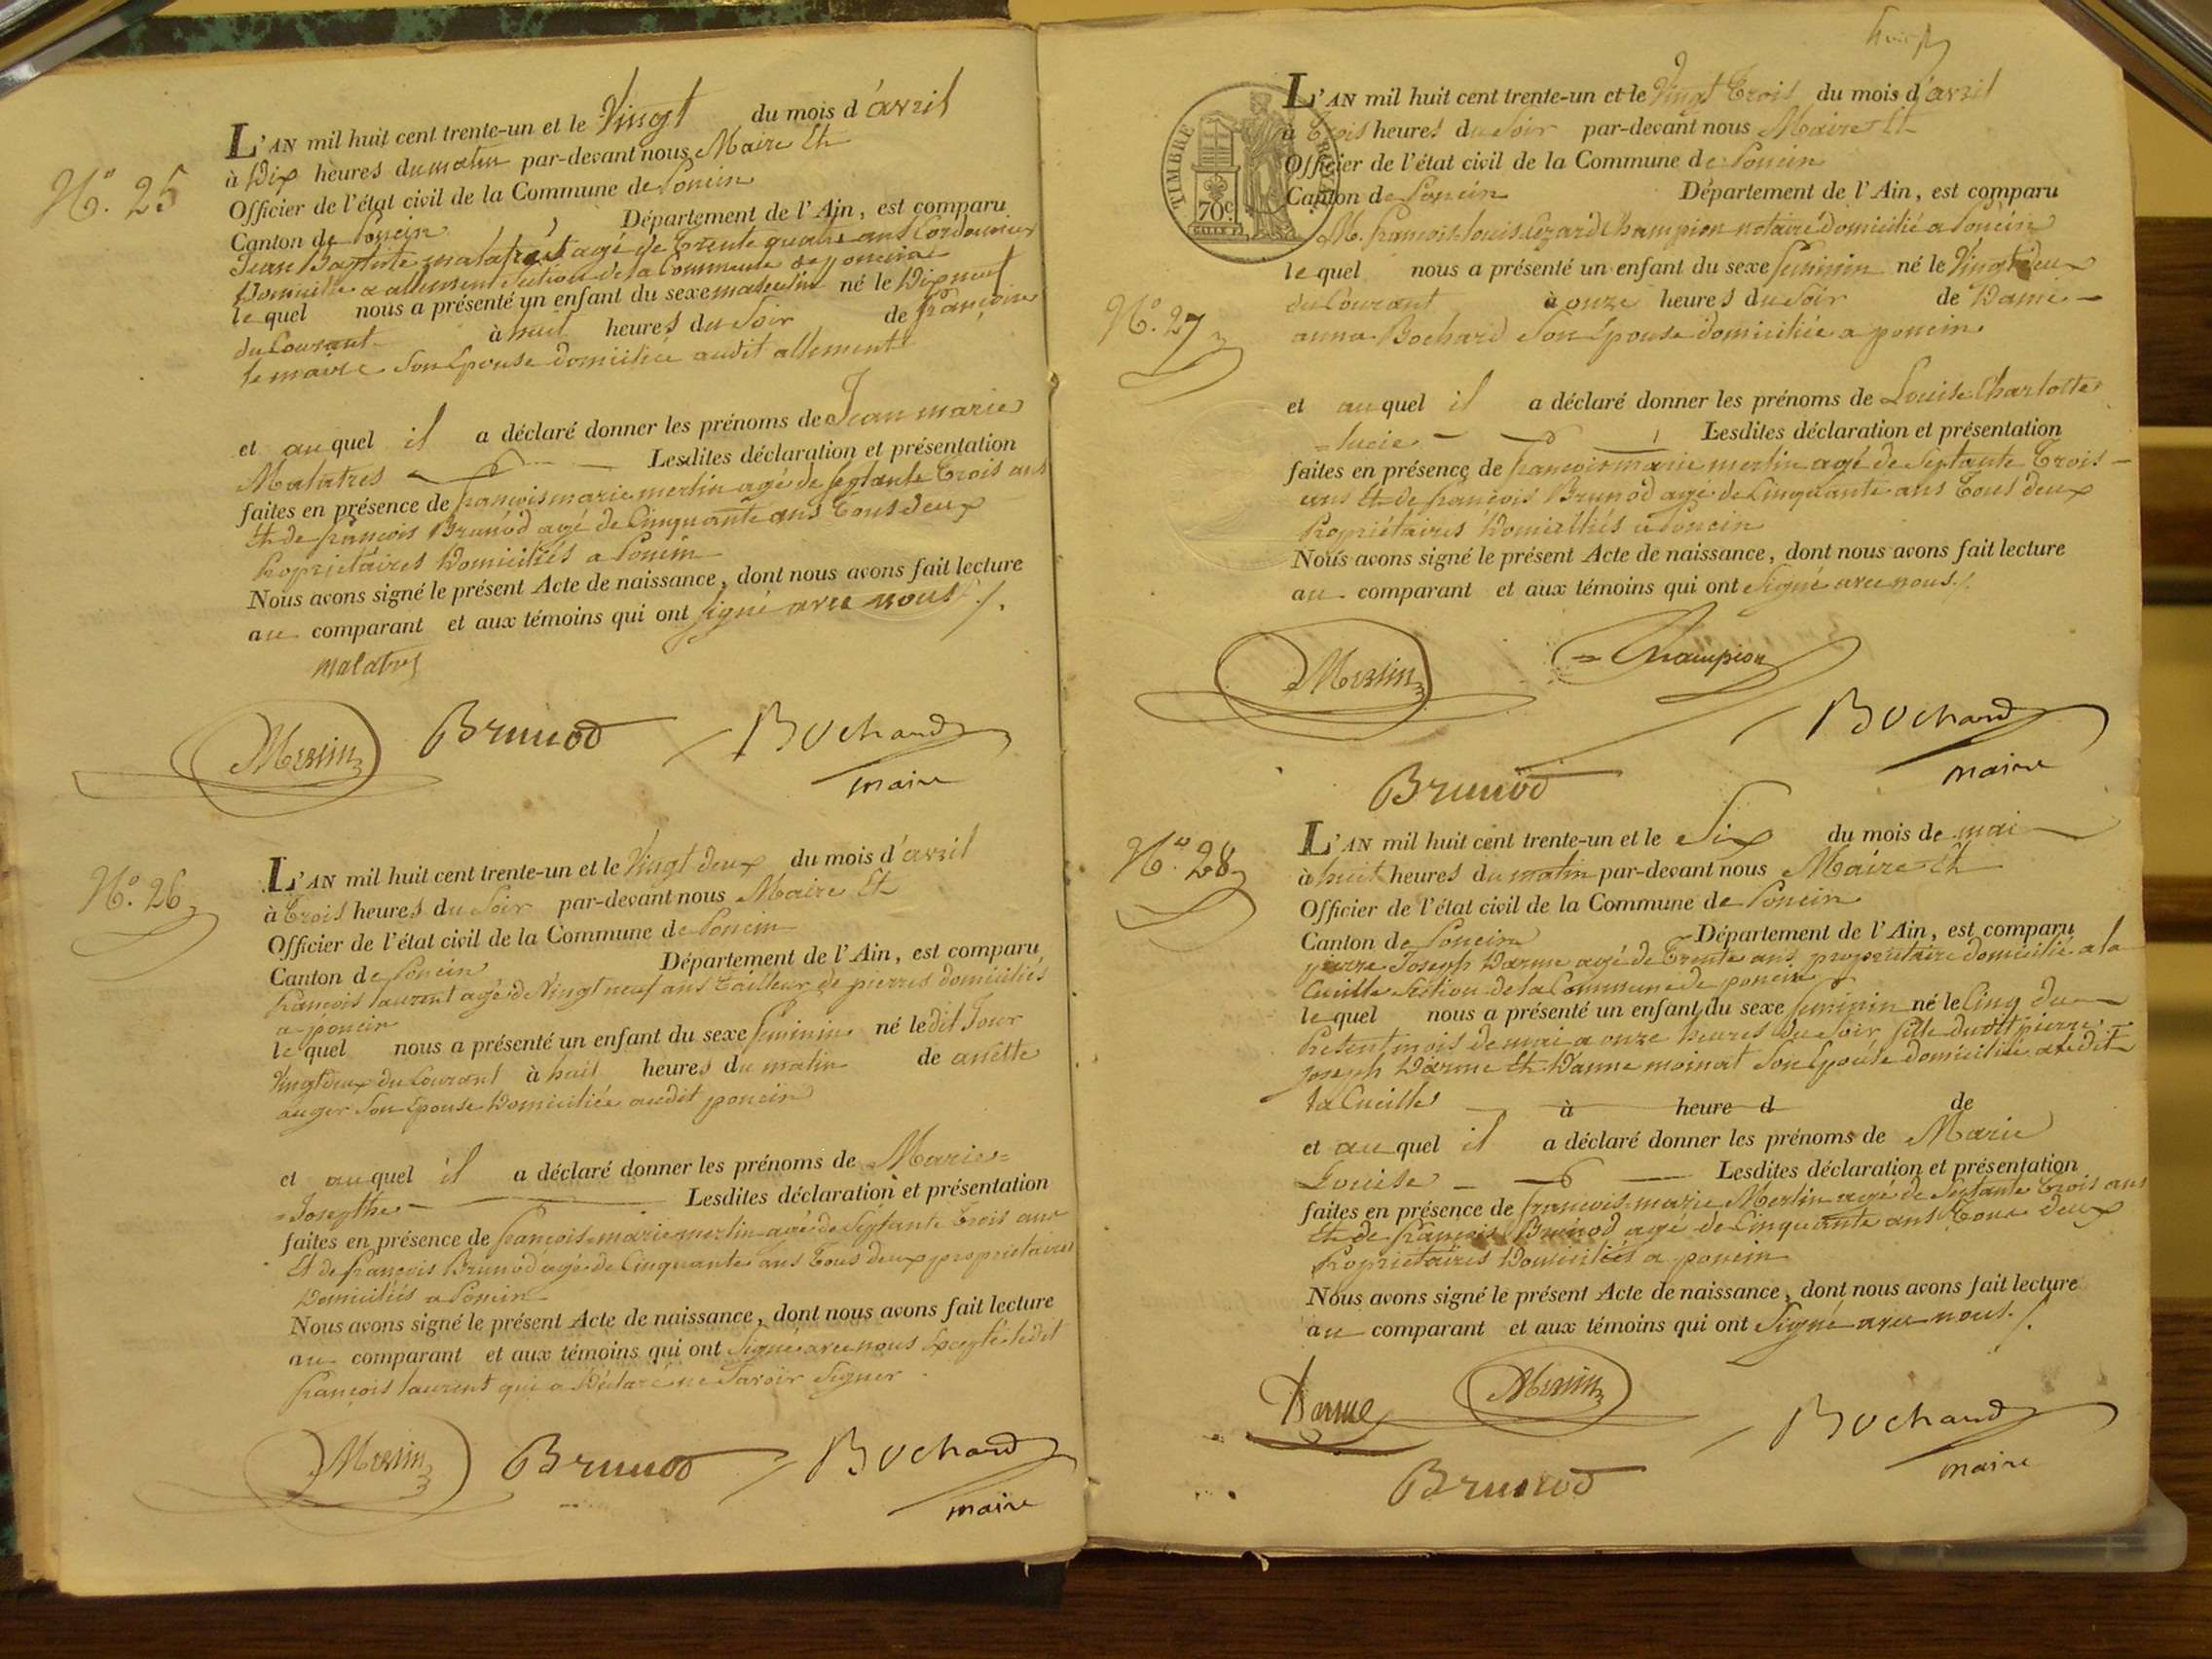 N.° 25
L'AN mil huit cent trente-un et le Vingt du mois d'avril
à Dix heures du matin par-devant nous Maire Et
Officier de l'état civil de la Commune de Poncin
Canton de Poncin Département de l'Ain, est comparu
Jean Baptiste malatrait agé de Trente quatre ans Cordonnier
Domicilié a allement Section de la Commune de poncin
le quel nous a présenté un enfant du sexe masculin né le Dixneuf
du Courant à neuf heures du Soir de françoise
lemaire Son Epouse domiciliée audit allement
et au quel il a déclaré donner les prénoms de Jean marie
Malatres Lesdites déclaration et présentation
faites en présence de françois marie merlin agé de Septante Trois ans
Et de françois Brunod agé de Cinquante ans Tous deux
Propriétaires Domiciliés a Poncin
Nous avons signé le présent Acte de naissance, dont nous avons fait lecture
au comparant et aux témoins qui ont Signé avec nous ./.
malatres
Merlin Brunod Bochard
maire
N.° 26
L'AN mil huit cent trente-un et le Vingt deux du mois d'avril
à Trois heures du Soir par-devant nous Maire Et
Officier de l'état civil de la Commune de Poncin
Canton de Poncin Département de l'Ain, est comparu
françois laurent agé de Vingt neuf ans Tailleur de pierres domiciliés
a poncin
le quel nous a présenté un enfant du sexe feminin né le dit Jour
Vingt deux du Courant à huit heures du matin de anette
auger Son Epouse Domiciliée audit poncin
et au quel il a déclaré donner les prénoms de Marie=
=Josephe Lesdites déclaration et présentation
faites en présence de françois marie merlin agé de Septante Trois ans
Et de françois Brunod agé de Cinquante ans Tous deux propriétaires
Domiciliés a Poncin
Nous avons signé le présent Acte de naissance, dont nous avons fait lecture
au comparant et aux témoins qui ont Signé avec nous Excepté ledit
françois laurent qui a Déclaré ne Savoir Signer.
Merlin Brunod Bochard
maire
TIMBRE ROYAL
70c
L'AN mil huit cent trente-un et le Vingt Trois du mois d'avril
à Trois heures du Soir par-devant nous Maire Et
Officier de l'état civil de la Commune de Poncin
Canton de Poncin Département de l'Ain, est comparu
M. françois louis Cezard Champion notaire domicilié a Poncin
le quel nous a présenté un enfant du sexe feminin né le Vingt deux
N.° 27
du Courant à onze heures du Soir de Dame
anna Bochard Son Epouse domiciliée a poncin
et au quel il a déclaré donner les prénoms de Louise Charlotte
=lucie Lesdites déclaration et présentation
faites en présence de françois marie merlin agé de Septante Trois
ans Et de françois Brunod agé de Cinquante ans Tous deux
Propriétaires Domiciliés a Poncin
Nous avons signé le présent Acte de naissance, dont nous avons fait lecture
au comparant et aux témoins qui ont Signé avec nous ./.
Merlin Champion
Bochard
maire
Brunod
N.° 28
L'AN mil huit cent trente-un et le Six du mois de mai
à huit heures du matin par-devant nous Maire Et
Officier de l'état civil de la Commune de Poncin
Canton de Poncin Département de l'Ain, est comparu
pierre Joseph Darme agé de Trente ans propriétaire domicilié a la
Cueille Section de la Commune de poncin
le quel nous a présenté un enfant du sexe feminin né le Cinq du
Present mois de mai a onze heures du Soir fille dudit pierre
Joseph Darme Et D'anne moinat Son Epouse domiciliée audit
la Cueille à heure d de
et au quel il a déclaré donner les prénoms de Marie
Louise Lesdites déclaration et présentation
faites en présence de françois marie Merlin agé de Septante Trois ans
Et de françois Brunod agé de Cinquante ans Tous deux
Propriétaires Domiciliés a poncin
Nous avons signé le présent Acte de naissance, dont nous avons fait lecture
au comparant et aux témoins qui ont Signé avec nous ./.
Darme Merlin Bochard
maire
Brunod